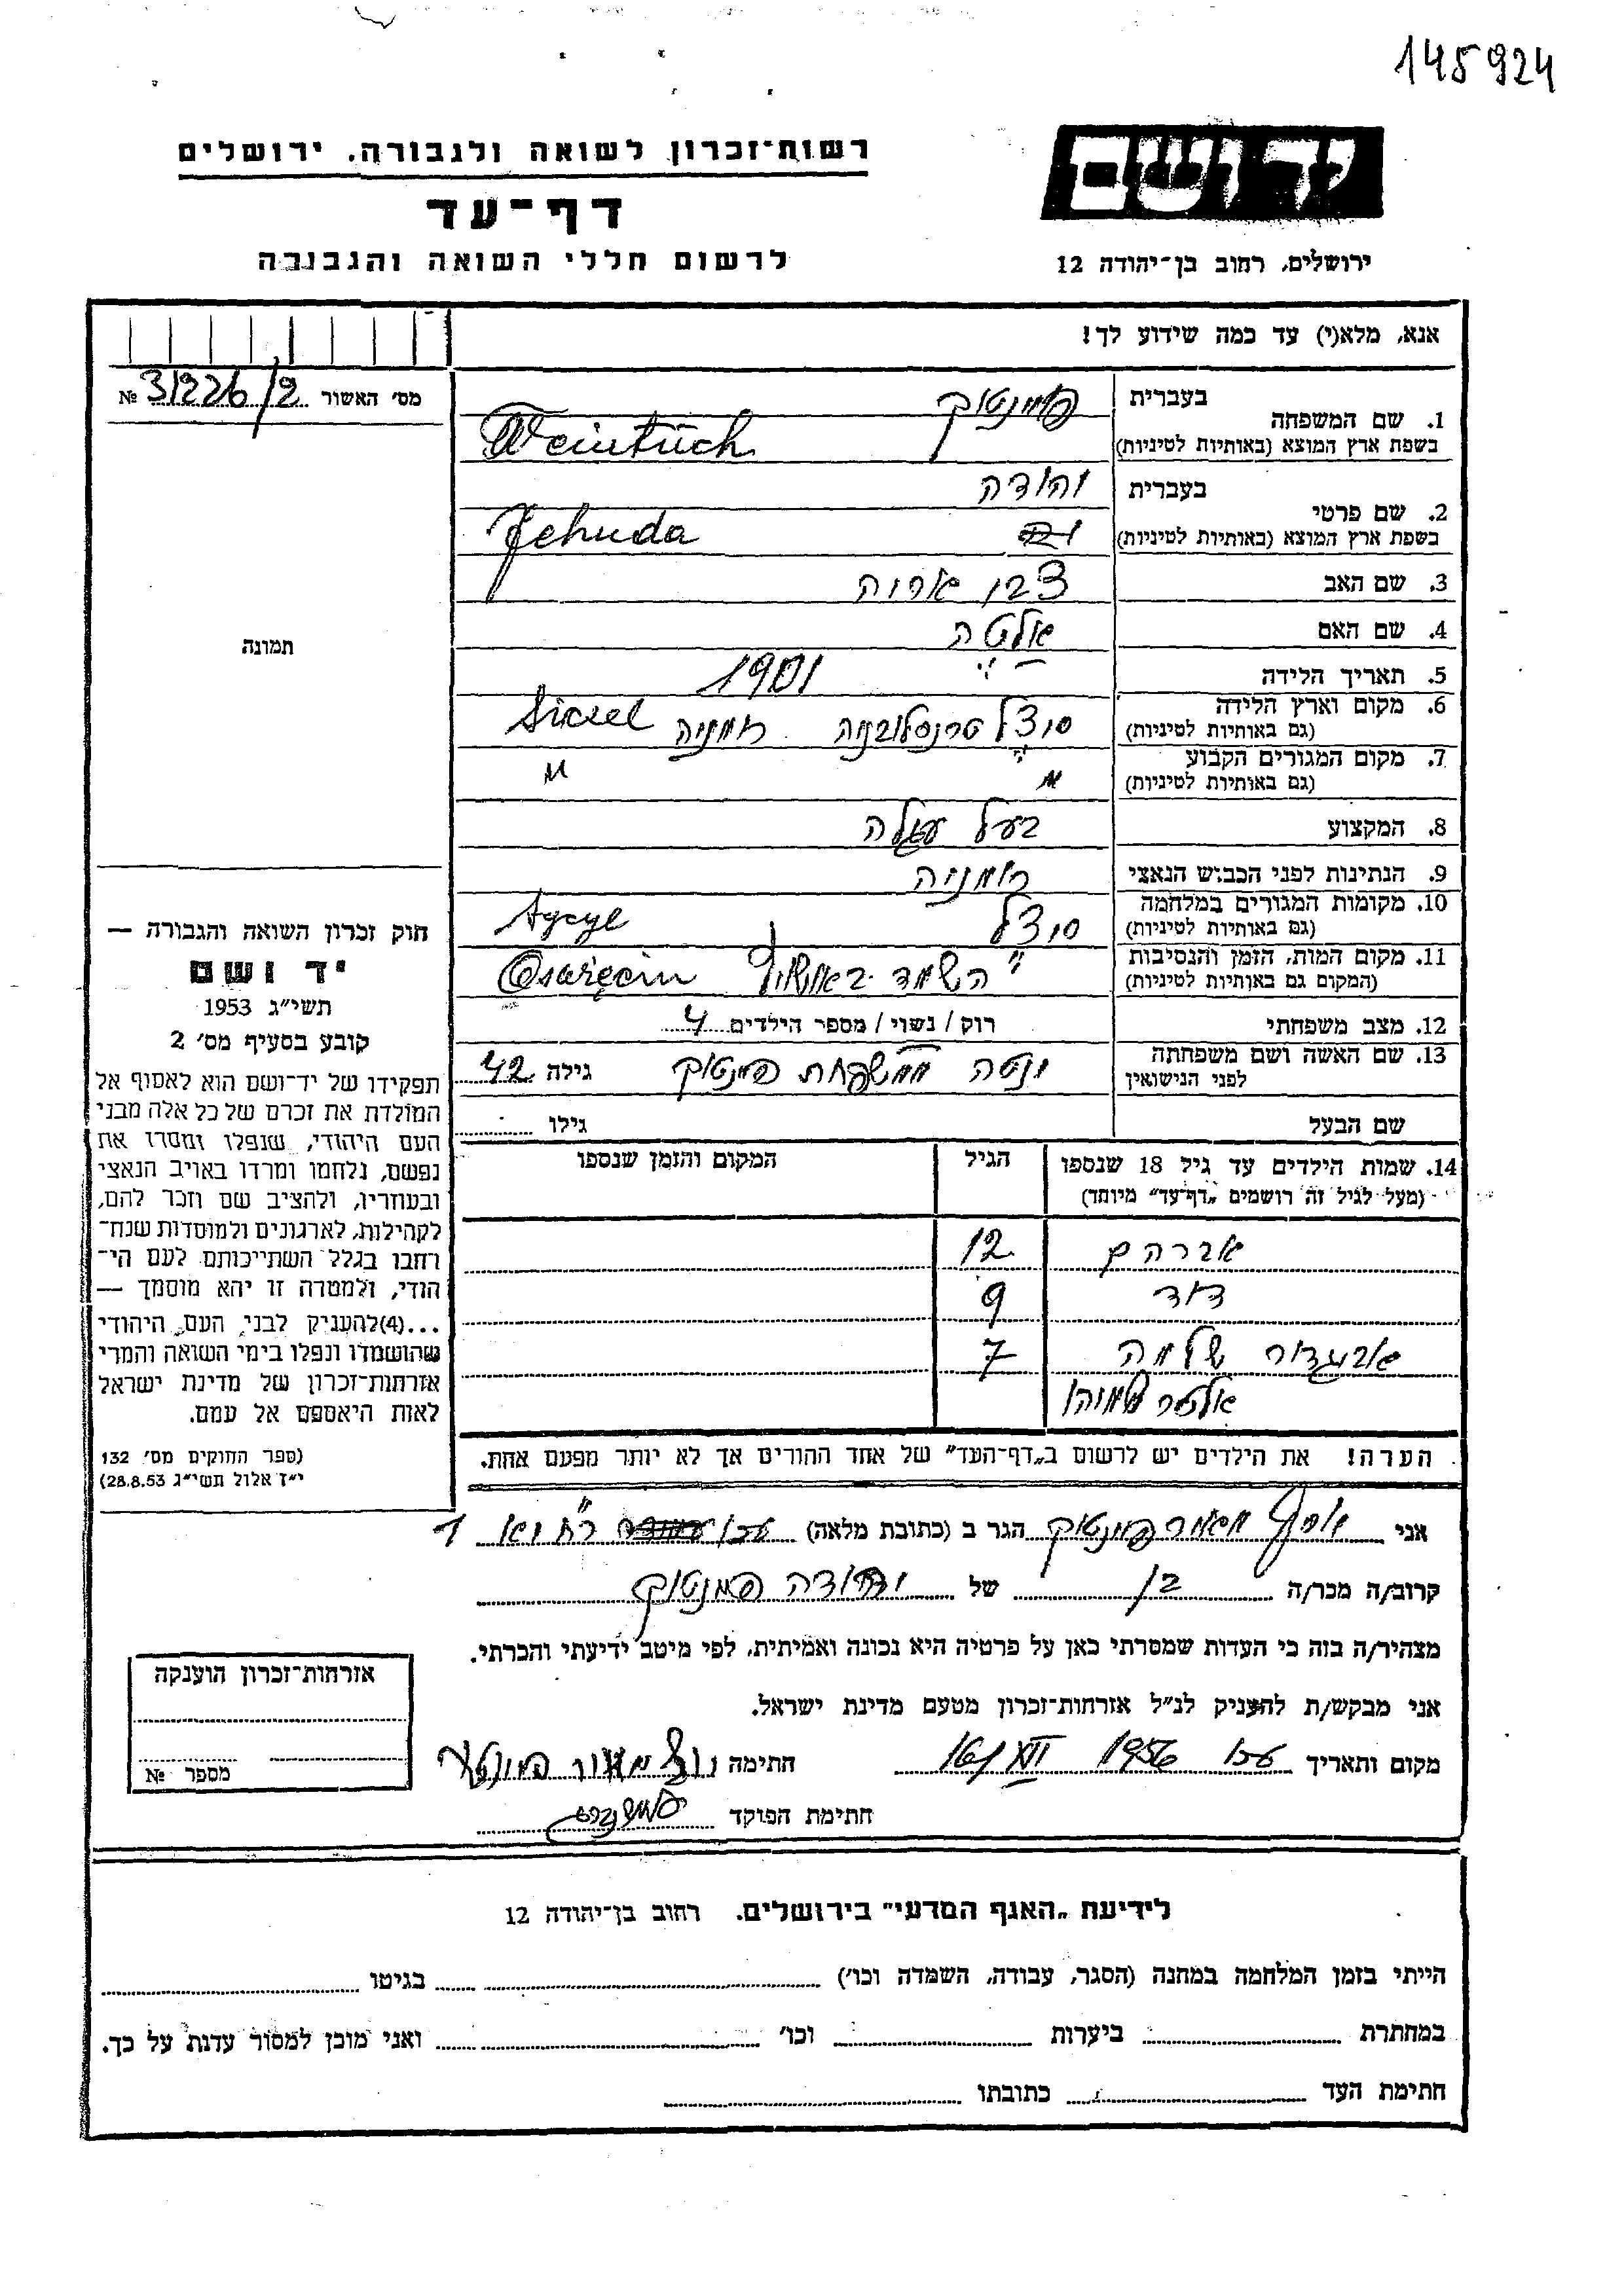 145924
ידושם
רשות־זכרון לשואה ולגבורה, ירושלים
דף־עד
לרשום חללי השואה והגבורה
ירושלים, רחוב בן־יהודה 12
אנא, מלא(י) עד כמה שידוע לך!
מס׳ האשור 31226/2 №
תמונה
1. שם המשפחה
בעברית
בשפת ארץ המוצא (באותיות לטיניות) Weintuch
2. שם פרטי
בעברית יהודה
בשפת ארץ המוצא (באותיות לטיניות) Jehuda
3. שם האב צבי אריה
4. שם האם אלטה
5. תאריך הלידה 1901
6. מקום וארץ הלידה
(גם באותיות לטיניות) סיצל טרנסלבניה רומניה
7. מקום המגורים הקבוע
(גם באותיות לטיניות) " "
8. המקצוע בעל עגלה
9. הנתינות לפני הכבוש הנאצי רומניה
10. מקומות המגורים במלחמה
(גם באותיות לטיניות) סיצל
11. מקום המות, הזמן והנסיבות
(המקום גם באותיות לטיניות) הושמד באושויץ
12. מצב משפחתי רוק / נשוי / מספר הילדים 4
13. שם האשה ושם משפחתה
לפני הנישואין יטה ממשפחת גילה 42
שם הבעל גילו
14. שמות הילדים עד גיל 18 שנספו הגיל המקום והזמן שנספו
(מעל לגיל זה רושמים „דף־עד״ מיוחד)
אברהם 12
דוד 9
אביגדור שלמה 7
אלטר
הערה! את הילדים יש לרשום ב„דף־העד״ של אחד ההורים אך לא יותר מפעם אחת.
חוק זכרון השואה והגבורה —
יד ושם
תשי״ג 1953
קובע בסעיף מס׳ 2
תפקידו של יד־ושם הוא לאסוף אל
המולדת את זכרם של כל אלה מבני
העם היהודי, שנפלו ומסרו את
נפשם, נלחמו ומרדו באויב הנאצי
ובעוזריו, ולהציב שם וזכר להם,
לקהילות, לארגונים ולמוסדות שנח־
רחבו בגלל השתייכותם לעם הי־
הודי, ולמטרה זו יהא מוסמך —
...(4)להעניק לבני העם היהודי
שהושמדו ונפלו בימי השואה והמרי
אזרחות־זכרון של מדינת ישראל
לאות היאספם אל עמם.
(ספר החוקים מס׳ 132
י״ז אלול תשי״ג 28.8.53)
אני יוסף מאיר הגר ב (כתובת מלאה)
קרוב/ה מכר/ה בן של יהודה
מצהיר/ה בזה כי העדות שמסרתי כאן על פרטיה היא נכונה ואמיתית, לפי מיטב ידיעתי והכרתי.
אני מבקש/ת להעניק לנ״ל אזרחות־זכרון מטעם מדינת ישראל.
מקום ותאריך 1956 XII חתימה
חתימת הפוקד
אזרחות־זכרון הוענקה
מספר №
לידיעת „האגף המדעי״ בירושלים. רחוב בן־יהודה 12
הייתי בזמן המלחמה במחנה (הסגר, עבודה, השמדה וכו׳) בגיטו
במחתרת ביערות וכו׳ ואני מוכן למסור עדות על כך.
חתימת העד כתובתו